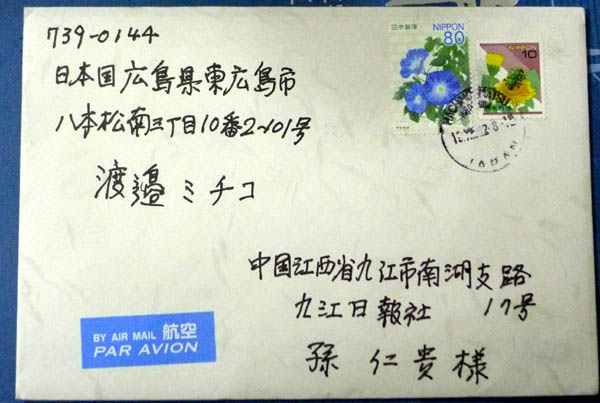 739-0144
日本国広島県東広島市
八本松南三丁目10番2~101号
渡邉ミチコ
日本郵便
NIPPON
80
NIPPON
10
JAPAN
中国江西省九江市南湖支路
九江日報社 17号
孫仁貴様
BY AIR MAIL 航空
PAR AVION